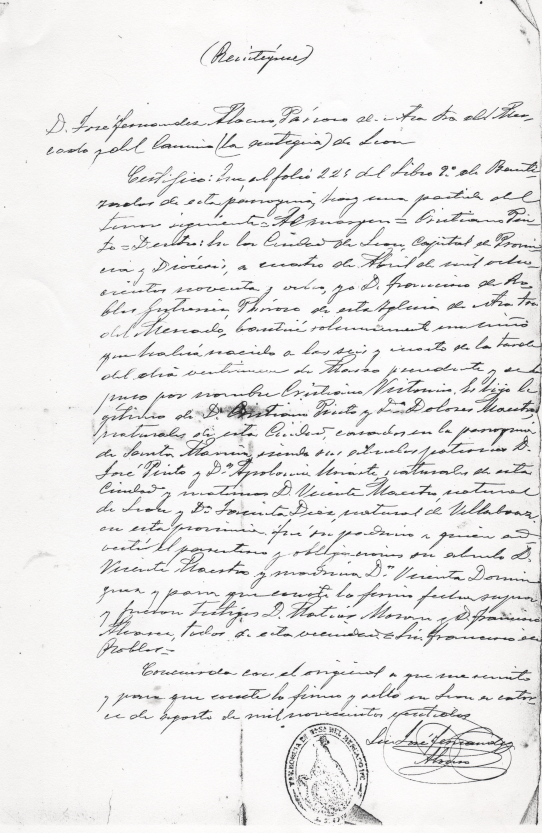 (Reintégrese)
D. José Fernandez Alvarez, Párroco de Ntra Sra del Mer-
cado y del Camino (La antigua) de León
Certifico: Que al folio 225 del Libro 9º de Bauti
zados de esta parroquia, hay una partida del
tenor siguiente = Al margen = Cristiano Prie
to = Dentro: En la Ciudad de Leon, Capital de Provin
cia y Diócesis, a cuatro de Abril de mil ocho-
cientos noventa y ocho, yo D. Francisco de Ro-
bles Gutierrez, Párroco de esta Iglesia de Ntra Sra
del Mercado, bauticé solemnemente un niño
que había nacido a las seis y cuarto de la tarde
del dia veintinueve de Marzo precedente y se le
puso por nombre Cristiano Victorio. Es hijo le
gítimo de Dn Cristiano Prieto y Dña Dolores Maestro
naturales de esta Ciudad, casados en la parroquia
de Santa Marina, siendo sus abuelos paternos D.
José Prieto y Dª Apolonia naturales de esta
Ciudad y maternos D. Vicente Maestro natural
de Leon y Dª Jacinta Diez, natural de
en esta provincia. Fué su padrino a quien ad
vertí el parentesco y obligaciones su abuelo D.
Vicente Maestro y madrina Dª Vicenta Domin
guez y para que conste lo firmo fecha supra
y fueron testigos D. Matías Moran y D. Francisco
Alvarez, todos de esta vecindad = Lic. Francisco de
Robles =
Concuerda con el original a que me remito
y para que conste lo firmo y sello en Leon a cator-
ce de agosto de mil novecientos
Lic. José Fernandez
Alvarez
PARROQUIA DE NTRA SRA DEL MERCADO